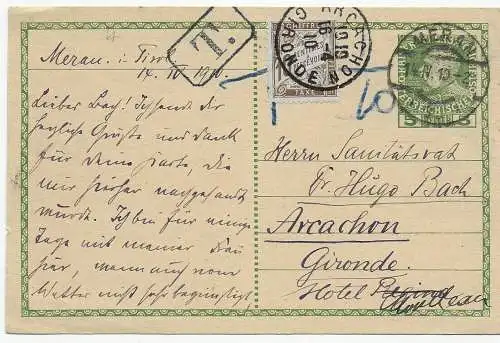 Meran i. Tirol
14. IV 1910.
Lieber Bach! Ich sende
herzliche Grüße und Dank
für deine Karte, die
mir hierher nachgesandt
wurde. Ich bin für einige
Tage mit meiner Frau
hier, wenn auch vom
Wetter nicht sehr begünstigt,
T.
CHIFFRE
TAXE
ARCACHON
16-4
10
GIRONDE
MERAN
14. IV. 10
10
Herrn Sanitätsrat
Dr. Hugo Bach
Arcachon
Gironde.
Hotel